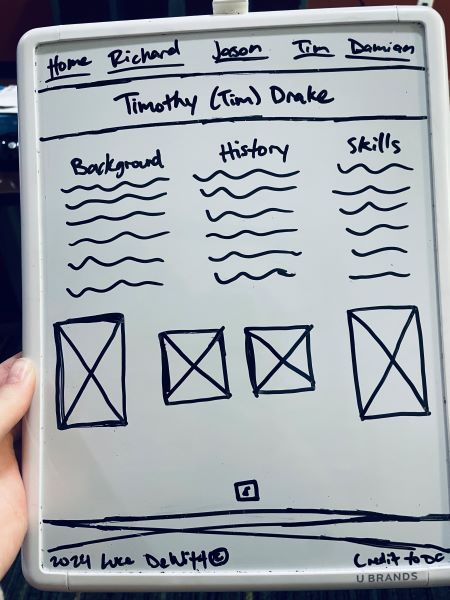 Home Richard Jason Tim Damian
Timothy (Tim) Drake
Background History Skills
2024 Luce DeWitt ©
Credit to DC
U BRANDS